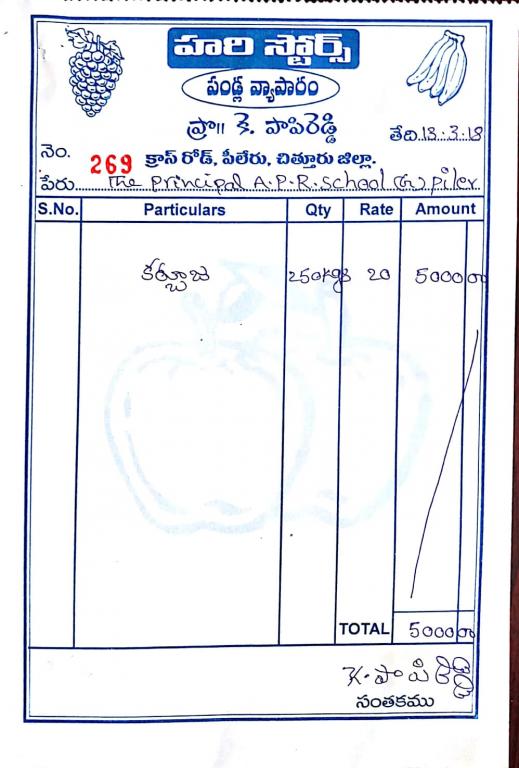 హరి స్టోర్స్
పండ్ల వ్యాపారం
ప్రొ॥ కె. పాపిరెడ్డి
తేది.13.3.18
నెం. 269 క్రాస్ రోడ్, పీలేరు, చిత్తూరు జిల్లా.
పేరు The Principal A.P.R.School (G) Piler
S.No. Particulars Qty Rate Amount
కర్బూజ 250Kgs 20 5000 00
TOTAL 5000 00
K. పాపిరెడ్డి
సంతకము